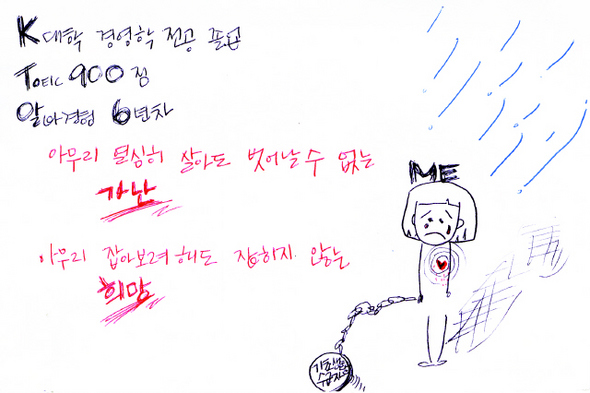 K대학 경영학 전공 졸업
TOEIC 900점
알바경험 6년차
아무리 열심히 살아도 벗어날 수 없는
가난
아무리 잡아보려 해도 잡히지 않는
희망
ME
기초생활
수급자